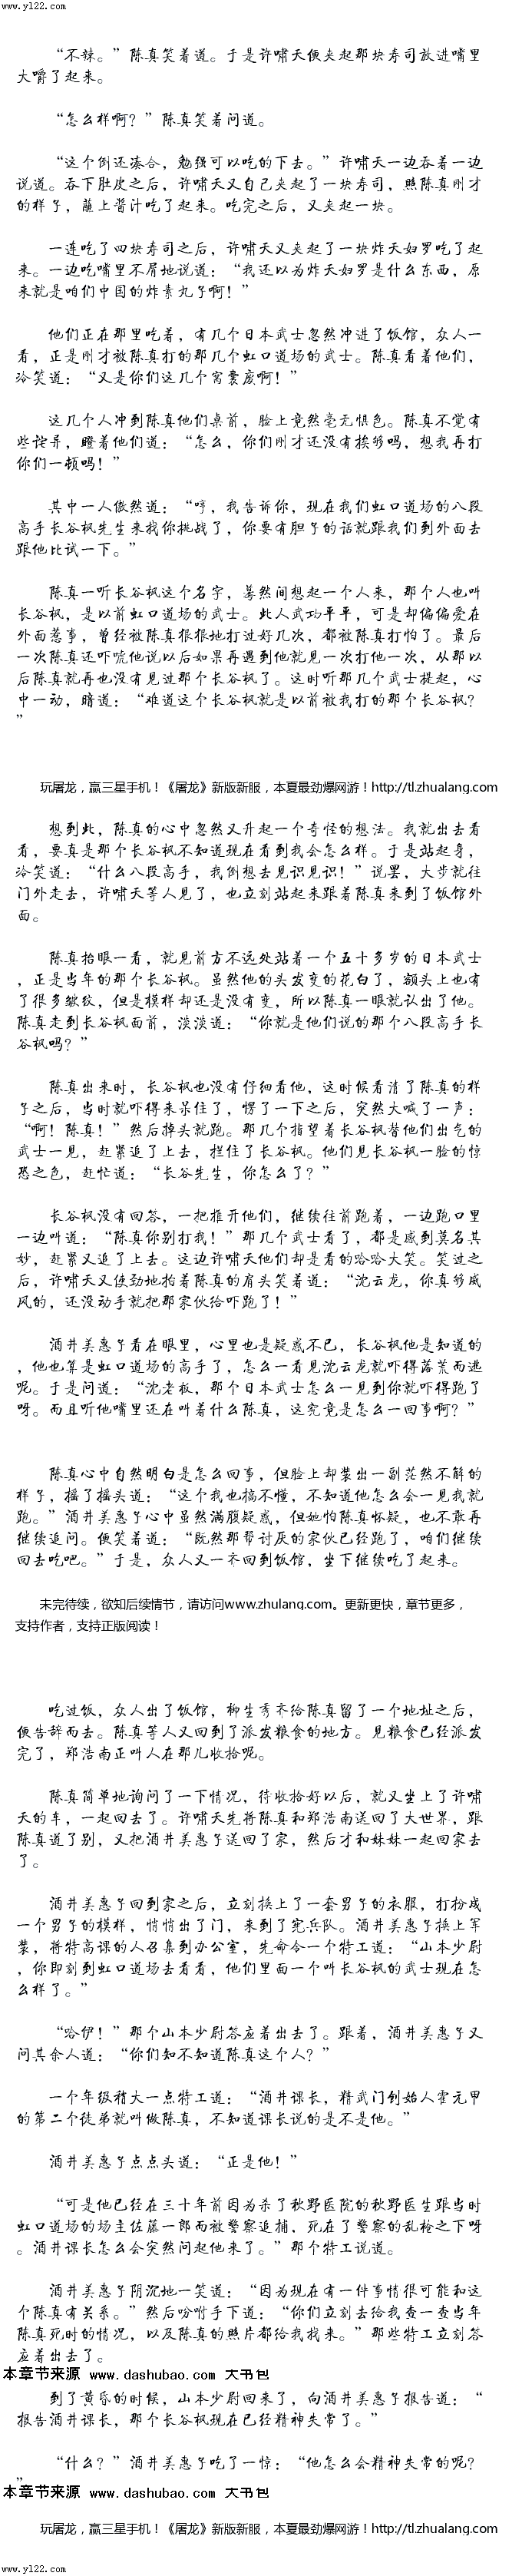 www.yl22.com
“不辣。”陈真笑着道。于是许啸天便夹起那块寿司放进嘴里
大嚼了起来。
“怎么样啊？”陈真笑着问道。
“这个倒还凑合，勉强可以吃的下去。”许啸天一边吞着一边
说道。吞下肚皮之后，许啸天又自己夹起了一块寿司，照陈真刚才
的样子，蘸上酱汁吃了起来。吃完之后，又夹起一块。
一连吃了四块寿司之后，许啸天又夹起了一块炸天妇罗吃了起
来。一边吃嘴里不屑地说道：“我还以为炸天妇罗是什么东西，原
来就是咱们中国的炸素丸子啊！”
他们正在那里吃着，有几个日本武士忽然冲进了饭馆，众人一
看，正是刚才被陈真打的那几个虹口道场的武士。陈真看着他们，
冷笑道：“又是你们这几个窝囊废啊！”
这几个人冲到陈真他们桌前，脸上竟然毫无惧色。陈真不觉有
些诧异，瞪着他们道：“怎么，你们刚才还没有挨够吗，想我再打
你们一顿吗！”
其中一人傲然道：“哼，我告诉你，现在我们虹口道场的八段
高手长谷枫先生来找你挑战了，你要有胆子的话就跟我们到外面去
跟他比试一下。”
陈真一听长谷枫这个名字，蓦然间想起一个人来，那个人也叫
长谷枫，是以前虹口道场的武士。此人武功平平，可是却偏偏爱在
外面惹事，曾经被陈真狠狠地打过好几次，都被陈真打怕了。最后
一次陈真还吓唬他说以后如果再遇到他就见一次打他一次，从那以
后陈真就再也没有见过那个长谷枫了。这时听那几个武士提起，心
中一动，暗道：“难道这个长谷枫就是以前被我打的那个长谷枫？
”
玩屠龙，赢三星手机！《屠龙》新版新服，本夏最劲爆网游！http://tl.zhualang.com
想到此，陈真的心中忽然又升起一个奇怪的想法。我就出去看
看，要真是那个长谷枫不知道现在看到我会怎么样。于是站起身，
冷笑道：“什么八段高手，我倒想去见识见识！”说罢，大步就往
门外走去，许啸天等人见了，也立刻站起来跟着陈真来到了饭馆外
面。
陈真抬眼一看，就见前方不远处站着一个五十多岁的日本武士
，正是当年的那个长谷枫。虽然他的头发变的花白了，额头上也有
了很多皱纹，但是模样却还是没有变，所以陈真一眼就认出了他。
陈真走到长谷枫面前，淡淡道：“你就是他们说的那个八段高手长
谷枫吗？”
陈真出来时，长谷枫也没有仔细看他，这时候看清了陈真的样
子之后，当时就吓得来呆住了，愣了一下之后，突然大喊了一声：
“啊！陈真！”然后掉头就跑。那几个指望着长谷枫替他们出气的
武士一见，赶紧追了上去，拦住了长谷枫。他们见长谷枫一脸的惊
恐之色，赶忙道：“长谷先生，你怎么了？”
长谷枫没有回答，一把推开他们，继续往前跑着，一边跑口里
一边叫道：“陈真你别打我！”那几个武士看了，都是感到莫名其
妙，赶紧又追了上去。这边许啸天他们却是看的哈哈大笑。笑过之
后，许啸天又使劲地拍着陈真的肩头笑着道：“沈云龙，你真够威
风的，还没动手就把那家伙给吓跑了！”
酒井美惠子看在眼里，心里也是疑惑不已，长谷枫他是知道的
，他也算是虹口道场的高手了，怎么一看见沈云龙就吓得落荒而逃
呢。于是问道：“沈老板，那个日本武士怎么一见到你就吓得跑了
呀。而且听他嘴里还在叫着什么陈真，这究竟是怎么一回事啊？”
陈真心中自然明白是怎么回事，但脸上却装出一副茫然不解的
样子，摇了摇头道：“这个我也搞不懂，不知道他怎么会一见我就
跑。”酒井美惠子心中虽然满腹疑惑，但她怕陈真怀疑，也不敢再
继续追问。便笑着道：“既然那帮讨厌的家伙已经跑了，咱们继续
回去吃吧。”于是，众人又一齐回到饭馆，坐下继续吃了起来。
未完待续，欲知后续情节，请访问www.zhulang.com。更新更快，章节更多，
支持作者，支持正版阅读！
吃过饭，众人出了饭馆，柳生秀齐给陈真留了一个地址之后，
便告辞而去。陈真等人又回到了派发粮食的地方。见粮食已经派发
完了，郑浩南正叫人在那儿收拾呢。
陈真简单地询问了一下情况，待收拾好以后，就又坐上了许啸
天的车，一起回去了。许啸天先将陈真和郑浩南送回了大世界，跟
陈真道了别，又把酒井美惠子送回了家，然后才和妹妹一起回家去
了。
酒井美惠子回到家之后，立刻换上了一套男子的衣服，打扮成
一个男子的模样，悄悄出了门，来到了宪兵队。酒井美惠子换上军
装，将特高课的人召集到办公室，先命令一个特工道：“山本少尉
，你即刻到虹口道场去看看，他们里面一个叫长谷枫的武士现在怎
么样了。”
“哈伊！”那个山本少尉答应着出去了。跟着，酒井美惠子又
问其余人道：“你们知不知道陈真这个人？”
一个年级稍大一点特工道：“酒井课长，精武门创始人霍元甲
的第二个徒弟就叫做陈真，不知道课长说的是不是他。”
酒井美惠子点点头道：“正是他！”
“可是他已经在三十年前因为杀了秋野医院的秋野医生跟当时
虹口道场的场主佐藤一郎而被警察追捕，死在了警察的乱枪之下呀
。酒井课长怎么会突然问起他来了。”那个特工说道。
酒井美惠子阴沉地一笑道：“因为现在有一件事情很可能和这
个陈真有关系。”然后吩咐手下道：“你们立刻去给我查一查当年
陈真死时的情况，以及陈真的照片都给我找来。”那些特工立刻答
应着出去了。
本章节来源 www.dashubao.com 大书包
到了黄昏的时候，山本少尉回来了，向酒井美惠子报告道：“
报告酒井课长，那个长谷枫现在已经精神失常了。”
“什么？”酒井美惠子吃了一惊：“他怎么会精神失常的呢？
”
本章节来源 www.dashubao.com 大书包
玩屠龙，赢三星手机！《屠龙》新版新服，本夏最劲爆网游！http://tl.zhualang.com
www.yl22.com